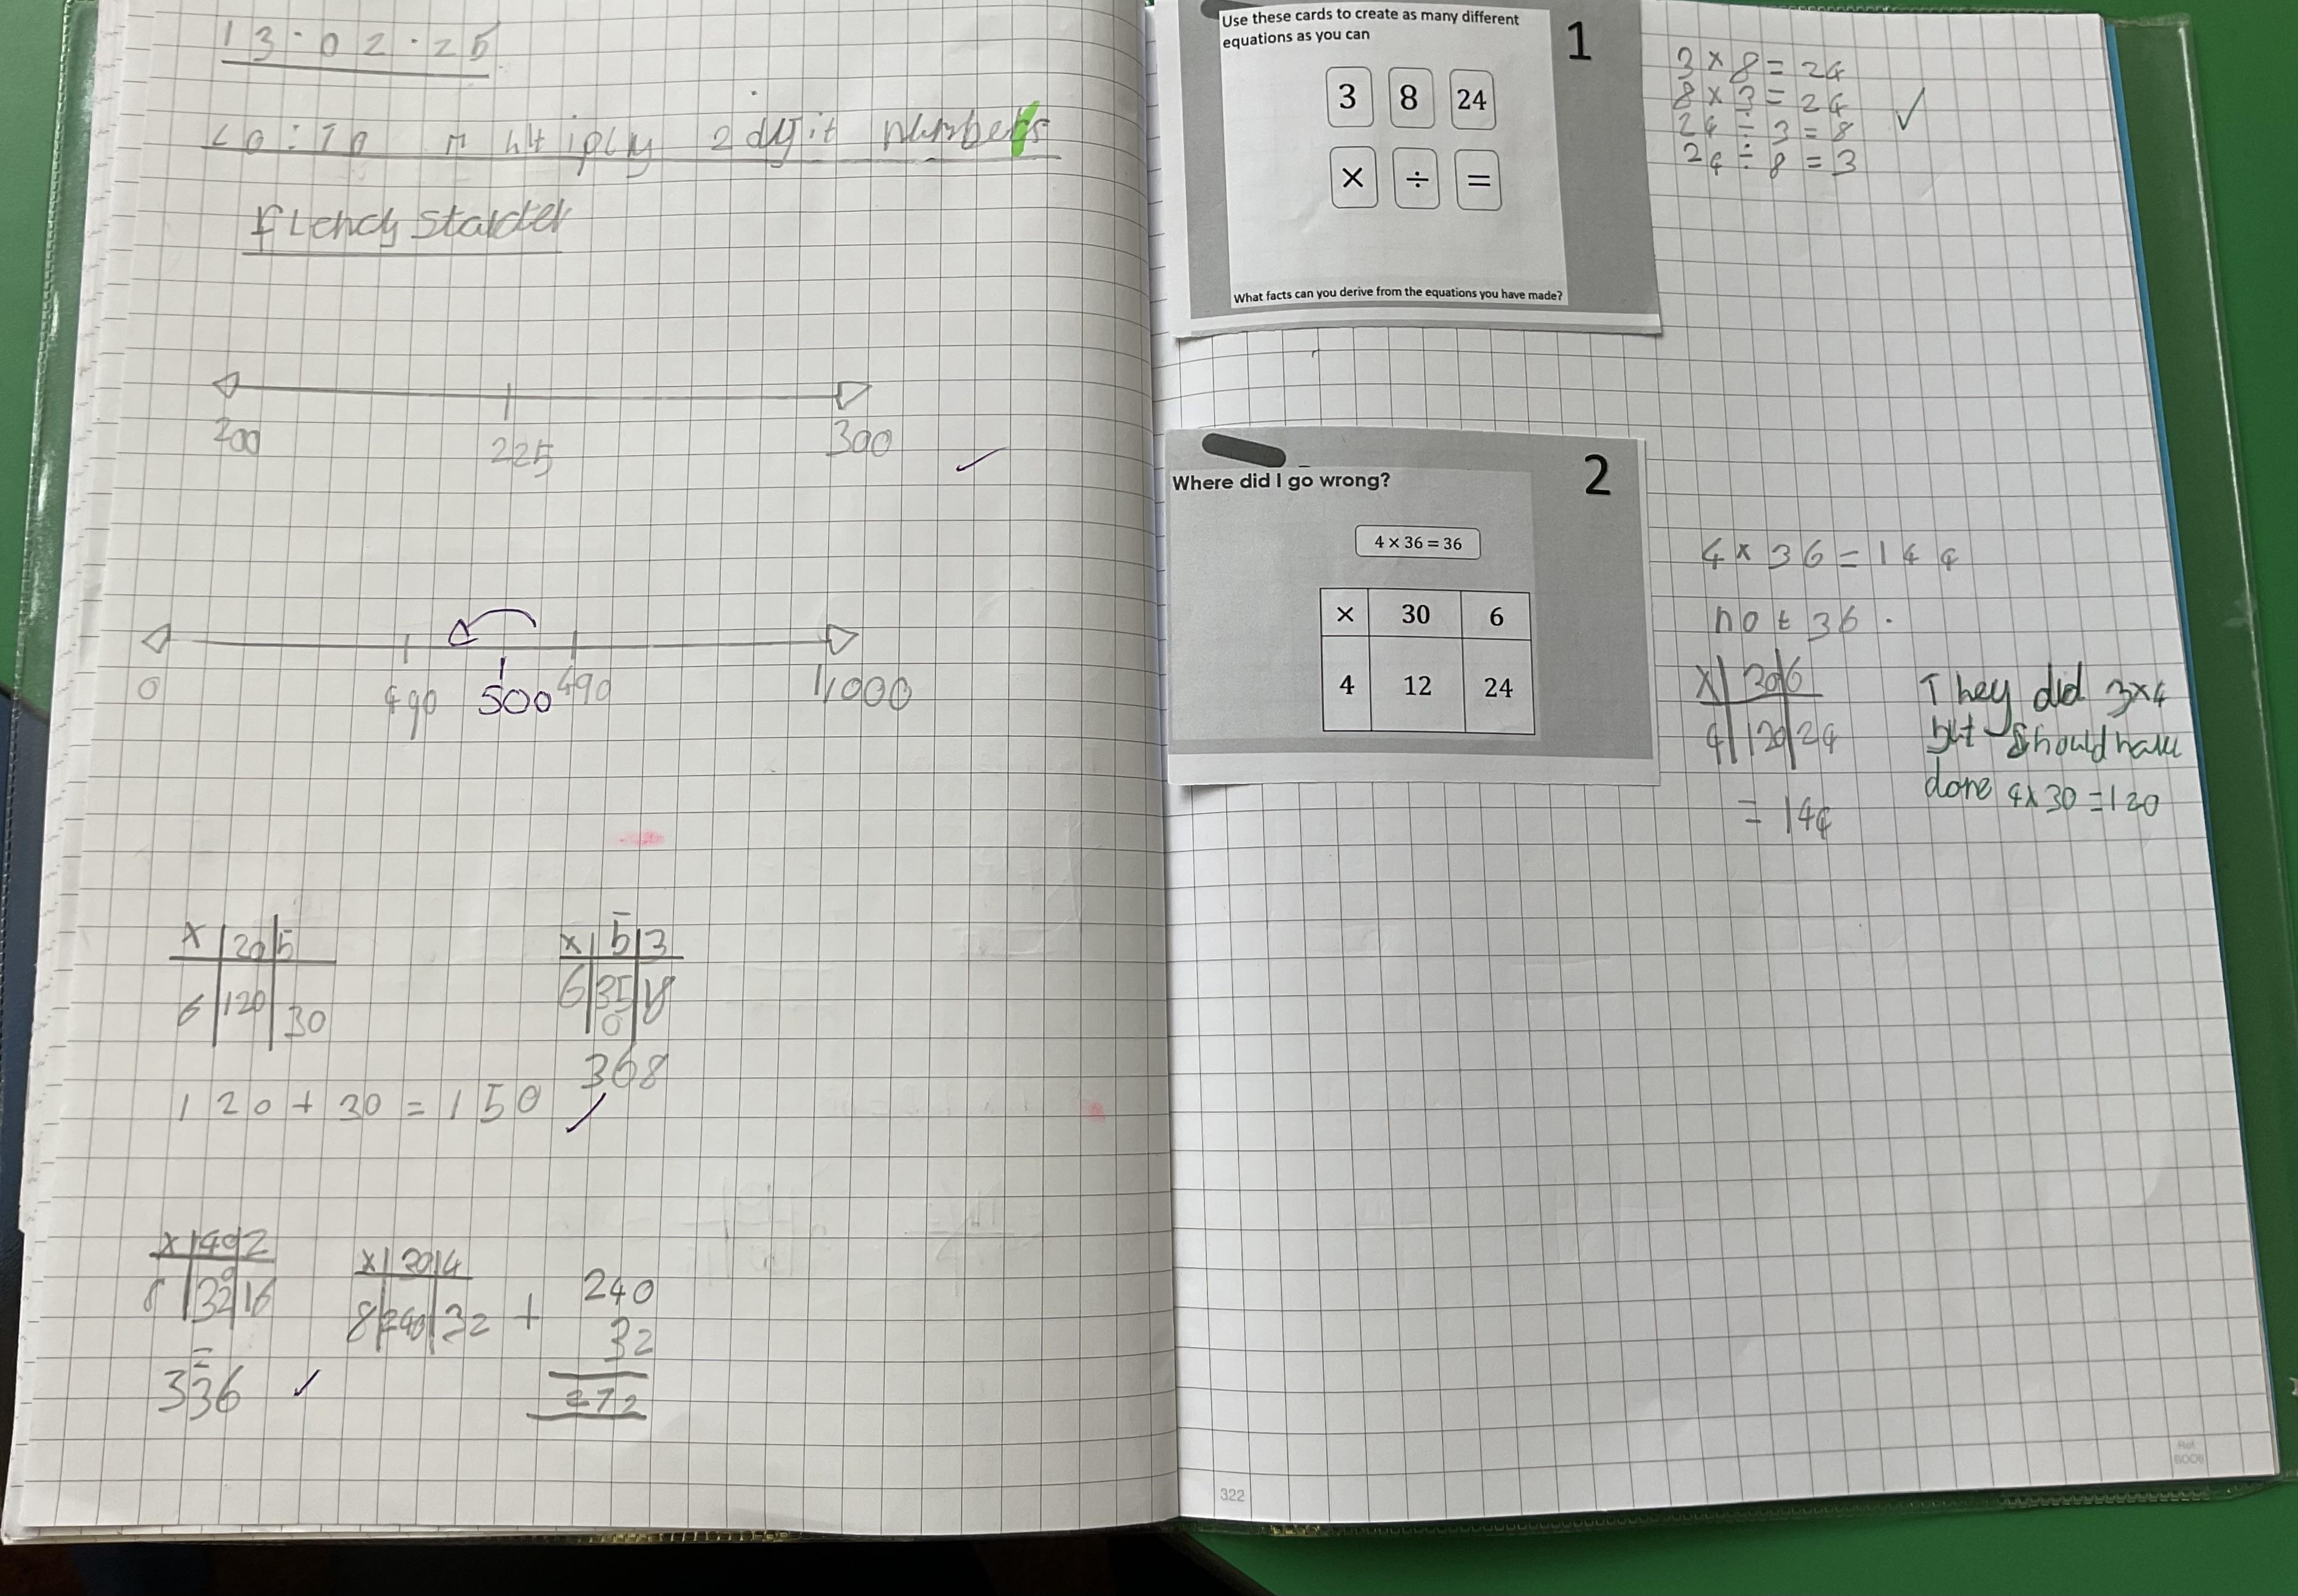 13.02.25
LO: To multiply 2 dgit numbers
flency starter
200 225 300
0 490 500 490 1,000
x 20 5
6 120 30
120 + 30 = 150
x 5 3
6 35 18
0
368
x 40 2
8 32 16
0
336
x 30 4
8 240 32
+ 240
32
272
Use these cards to create as many different
equations as you can
1
3 8 24
× ÷ =
What facts can you derive from the equations you have made?
3 × 8 = 24
8 × 3 = 24
24 ÷ 3 = 8
24 ÷ 8 = 3
Where did I go wrong?
2
4 × 36 = 36
× 30 6
4 12 24
4 × 36 = 144
not 36.
x 30 6
4 120 24
= 144
They did 3x4
but should have
done 4x30=120
322
Ref